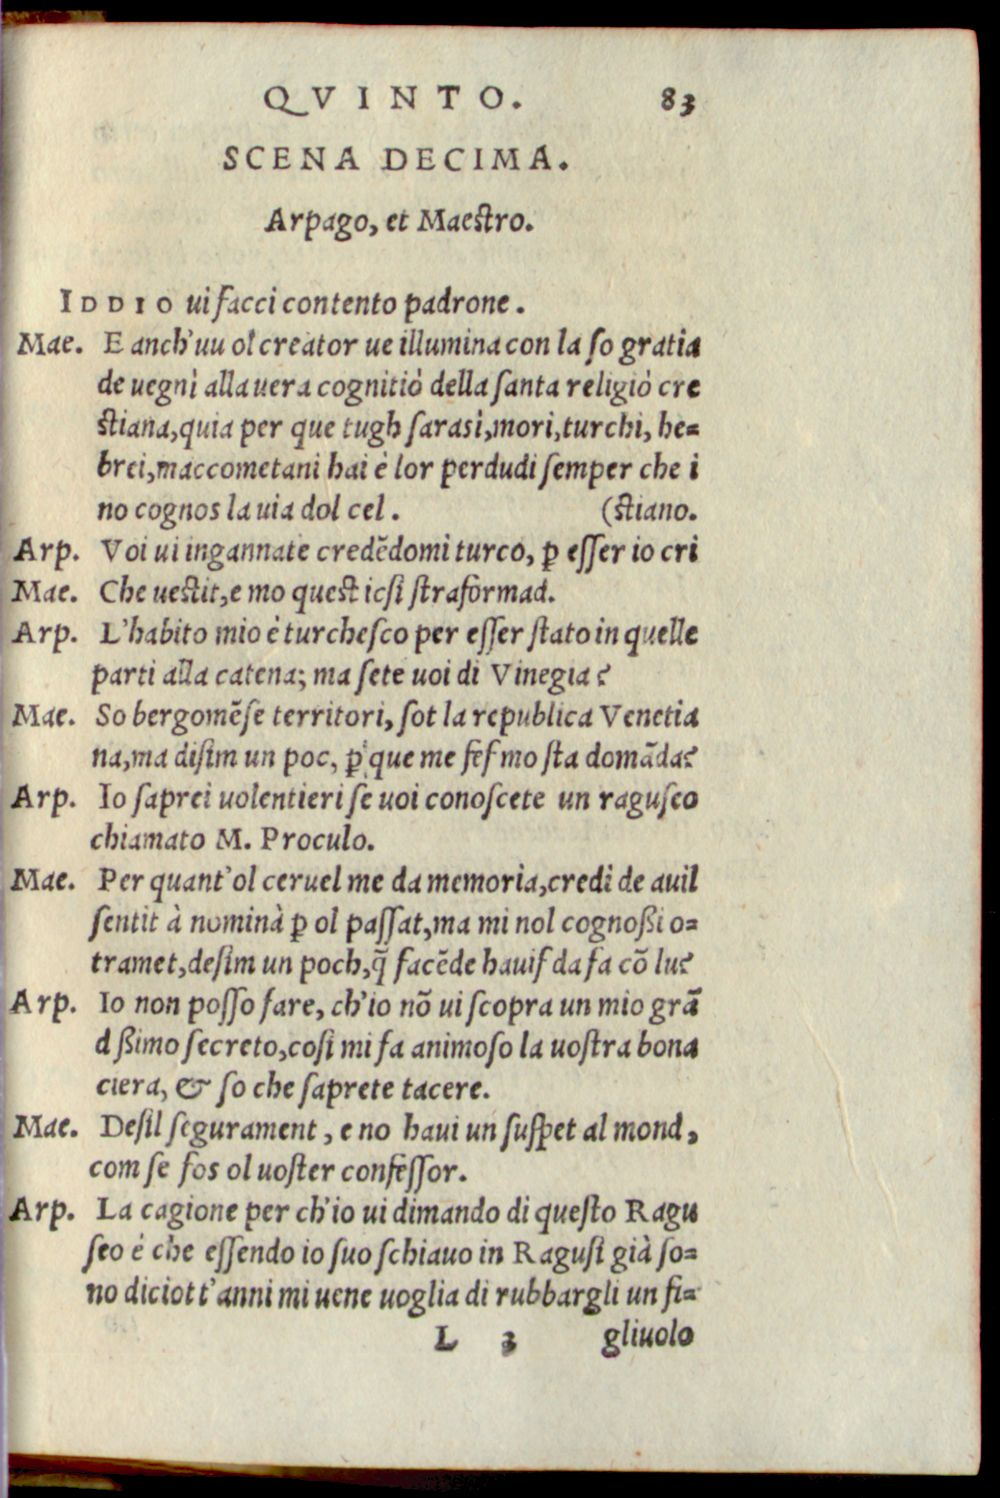 QVINTO. 83
SCENA DECIMA.
Arpago, et Maeſtro.
IDDIO ui facci contento padrone.
Mae. E anch'uu ol creator ue illumina con la ſo gratia
de uegnì alla uera cognitiò della ſanta religiò cre
ſtiana, quia per que tugh ſarasì, mori, turchi, he=
brei, maccometani hai è lor perdudi ſemper che i
no cognos la uia dol cel. (ſtiano.
Arp. Voi ui ingannate credẽdomi turco, ꝑ eſſer io cri
Mae. Che ueſtit, e mo queſt icſi ſtraformad.
Arp. L'habito mio è turcheſco per eſſer ſtato in quelle
parti alla catena; ma ſete uoi di Vinegia?
Mae. So bergomẽſe territori, ſot la republica Venetia
na, ma diſim un poc, ꝑ que me feſ mo ſta domãda?
Arp. Io ſaprei uolentieri ſe uoi conoſcete un raguſeo
chiamato M. Proculo.
Mae. Per quant'ol ceruel me da memoria, credi de auil
ſentit à nominà ꝑ ol paſſat, ma mi nol cognoßi o=
tramet, deſim un poch, q̃ facẽde hauiſ da fa cõ lu?
Arp. Io non poſſo fare, ch'io nõ ui ſcopra un mio grã
d ßimo ſecreto, coſi mi fa animoſo la uoſtra bona
ciera, & ſo che ſaprete tacere.
Mae. Deſil ſegurament, e no haui un ſuſpet al mond,
com ſe fos ol uoſter confeſſor.
Arp. La cagione per ch'io ui dimando di queſto Ragu
ſeo è che eſſendo io ſuo ſchiauo in Raguſi già ſo=
no diciott'anni mi uene uoglia di rubbargli un fi=
L 3 gliuolo